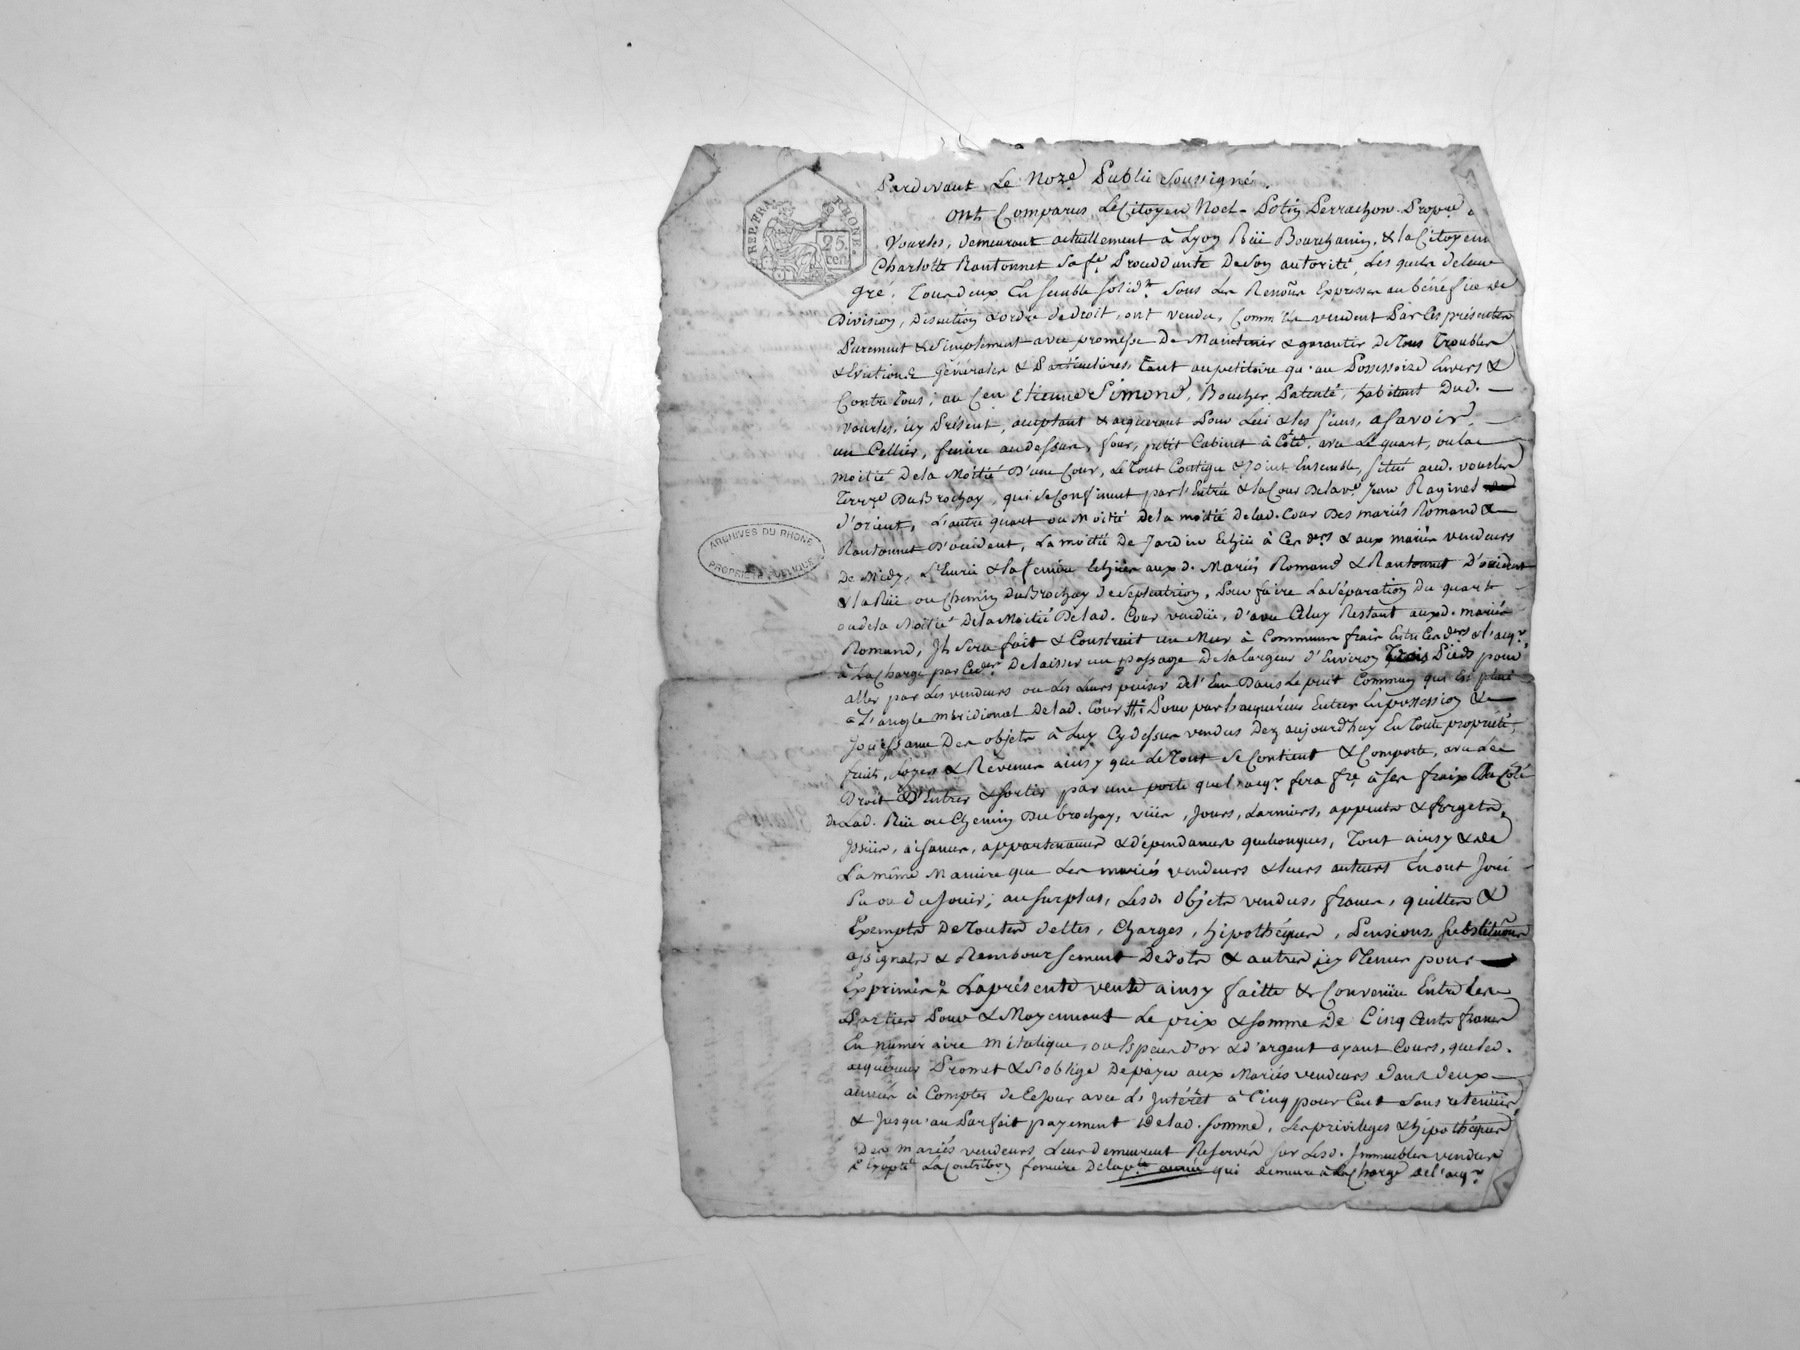 REP. FRA. RHONE.
25 cen
ARCHIVES DU RHONE
PROPRIÉTÉ PUBLIQUE
Pardevant Le Nore Public Soussigné.
Ont Comparus, Le Citoyen Noel - Potin Perrachon Propre à
Vourles, demeurant actuellement à Lyon Rüe Bourchanin, & la Citoyene
Charlotte Rantonnet Sa fe. Procédante De Son autorité, Les quels de leur
gré, Tous deux Ensemble solidt. Sous Les Renon Expresses au bénéfice de
Division, Discution & ordre de droit, ont vendu, Comm'ils vendent Par Ces présentes
Purement & Simplement avec promesse De Maintenir & garantir De Tous Troubles
& Evictions Générales & Particulières, Tant au petitoire qu'au Possessoire Envers &
Contre Tous; au Cen Etienne Simond, Boucher Patenté, habitant Dud.
Vourles, icy Présent, acceptant & acquerant Pour Lui & les Siens, asavoir,
un Cellier, feniere au dessus, four, petit Cabinet à Côté, avec Le quart, ou la
moitié De la Moitié D'une Cour, Le Tout Contigu & Joint Ensemble, situé aud. vourles
Terre Du Brochay, qui se Confinent par l'Entrée & la Cour De la ve. Jean Raginel
d'orient, L'autre quart ou Moitié De la moitié De lad. Cour Des mariés Romand &
Rantonnet D'occident, La moitié De Jardin Echüe à Ces ders & aux mariés vendeurs
De Midy, L'Ecurie & la feniere Echües aux d. Mariés Romand & Rantonnet D'occident
& la Rüe ou Chemin Du Brochay de Septentrion, Pour faire La Séparation Du quart
ou de la Moitié De la Moitié De lad. Cour vendüe, d'avec Celuy Restant auxd. mariés
Romand, Il Sera fait & Construit un Mur à Communs frais Entre Ces ders & l'acqr
à La Charge par Ce der De laisser un passage De la largeur d'Environ Trois Pieds pour
aller par Les vendeurs ou Les Leurs puiser de l'Eau Dans Le puit Commun qui est placé
à L'angle Méridional De lad. Cour Pour par L'acquéreur Entrer En possession &
Jouissance Des objets à Luy Cy dessus vendus Dez aujourd'huy En Toute propriété,
fruits, Loyers & Revenus ainsy que Le Tout Se Contient & Comporte, avec Les
Droit D'Entrer & sortir par une porte que l'acqr fera fre à ses fraix Du Côté
de Lad. Rüe ou Chemin Du brochay, vües, Jours, Larmiers, appents & forgets,
Issües, aisances, appartenances & dépendances quelconques, Tout ainsy & de
La même Maniere que Les mariés vendeurs & leurs auteurs En ont Joui
Pu ou du Jouir; au surplus, Lesd. Objets vendus, francs, quittes &
Exempts De Toutes dettes, Charges, hipothéques, Pensions, substitutions
assignats & Remboursement De dots & autres icy Tenus pour
Exprimés La présente vente ainsy faitte & Convenüe Entre les
Parties Pour & Moyennant Le prix & somme De Cinq Cents francs
En numéraire métalique, ou Especes d'or & d'argent ayant Cours, que led.
acquéreur Promet & S'oblige De payer aux Mariés vendeurs dans deux
années à Compter de Ce Jour avec L'Intérêt à Cinq pour Cent Sans retenüe
& Jusqu'au Parfait payement de lad. somme, Les privileges & hipothéques
Des mariés vendeurs Leur demeurent Reservés sur Lesd. Immeubles vendus
Excepté La Contribon fonciere De la pte année qui demeure à La Charge de l'acqr